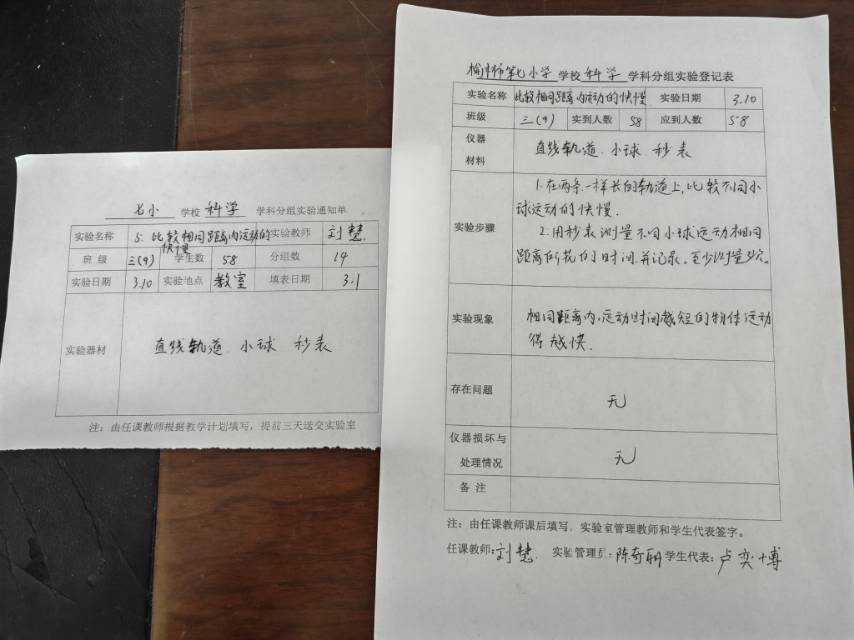 七小 学校 科学 学科分组实验通知单
实验名称 5. 比较相同距离内运动的快慢 实验教师 刘慧
班级 三(9) 学生数 58 分组数 14
实验日期 3.10 实验地点 教室 填表日期 3.1
实验器材 直线轨道 小球 秒表
注：由任课教师根据教学计划填写，提前三天送交实验室
榆中市第七小学 学校 科学 学科分组实验登记表
实验名称 比较相同距离内运动的快慢 实验日期 3.10
班级 三(9) 实到人数 58 应到人数 58
仪器
材料 直线轨道、小球、秒表
实验步骤 1.在两条一样长的轨道上，比较不同小
球运动的快慢.
2.用秒表测量不同小球运动相同
距离所花的时间，并记录。至少测量3次。
实验现象 相同距离内，运动时间越短的物体运动
得越快.
存在问题 无
仪器损坏与
处理情况 无
备注
注：由任课教师课后填写，实验室管理教师和学生代表签字。
任课教师：刘慧 实验管理员：陈奇丽 学生代表：卢奕博